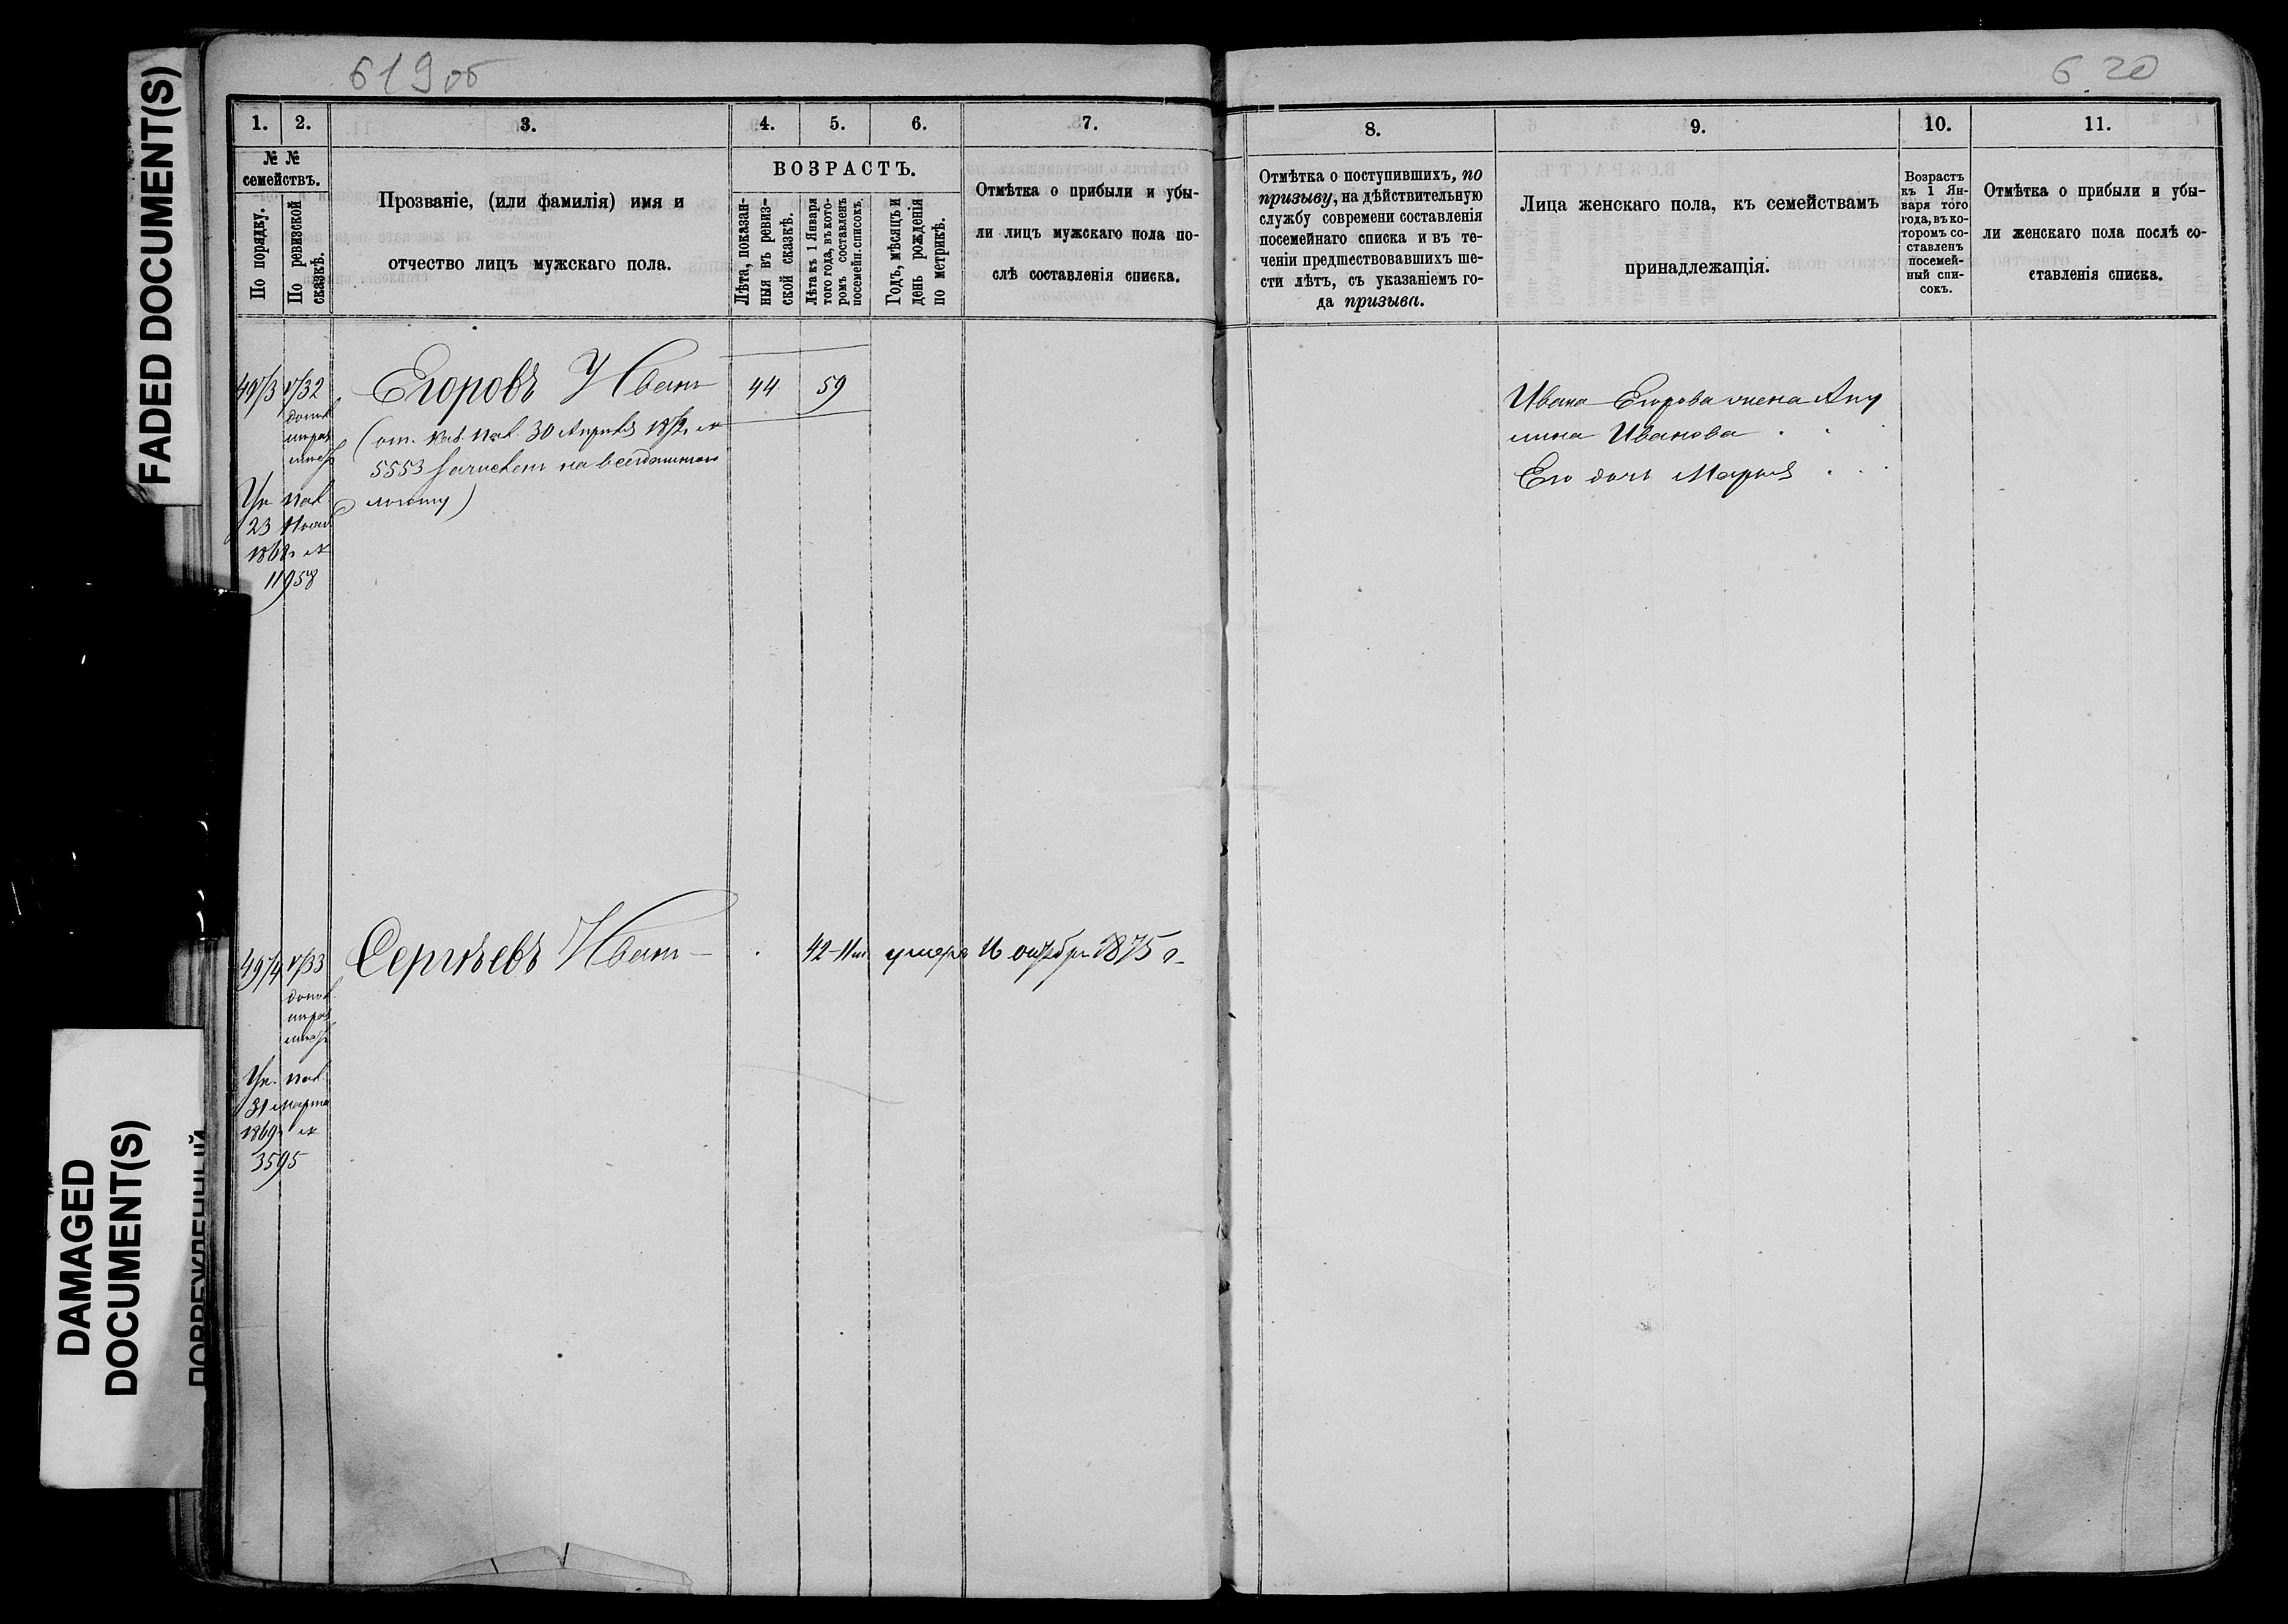 FADED DOCUMENT(S)
DAMAGED
DOCUMENT(S)
ПОВРЕЖДЕННЫЙ
619 об
1. 2. 3. 4. 5. 6. 7.
№ №
семействъ.
По порядку.
По ревизской
сказкѣ.
Прозваніе, (или фамилія) имя и
отчество лицъ мужскаго пола.
ВОЗРАСТЪ.
Лѣта, показан-
ныя въ ревиз-
ской сказкѣ.
Лѣта къ 1 Января
того года, въ кото-
ромъ составленъ
посемейн. списокъ.
Годъ, мѣсяцъ и
день рожденія
по метрикѣ.
Отмѣтка о прибыли и убы-
ли лицъ мужскаго пола по-
слѣ составленія списка.
Егоровъ Иванъ 44 59
30 Апрѣля
5553
23
11958
Сергѣевъ Иванъ 42 умеръ 16 октябр. 1875 г.
31 марта
1869 г. №
3595
620
8. 9. 10. 11.
Отмѣтка о поступившихъ, по
призыву, на дѣйствительную
службу современи составленія
посемейнаго списка и въ те-
ченіи предшествовавшихъ ше-
сти лѣтъ, съ указаніемъ го-
да призыва.
Лица женскаго пола, къ семействамъ
принадлежащія.
Возрастъ
къ 1 Ян-
варя того
года, въ ко-
торомъ со-
ставленъ
посемей-
ный спи-
сокъ.
Отмѣтка о прибыли и убы-
ли женскаго пола послѣ со-
ставленія списка.
Ивана Егорова жена Аку
лина Иванова
Его дочь Марья